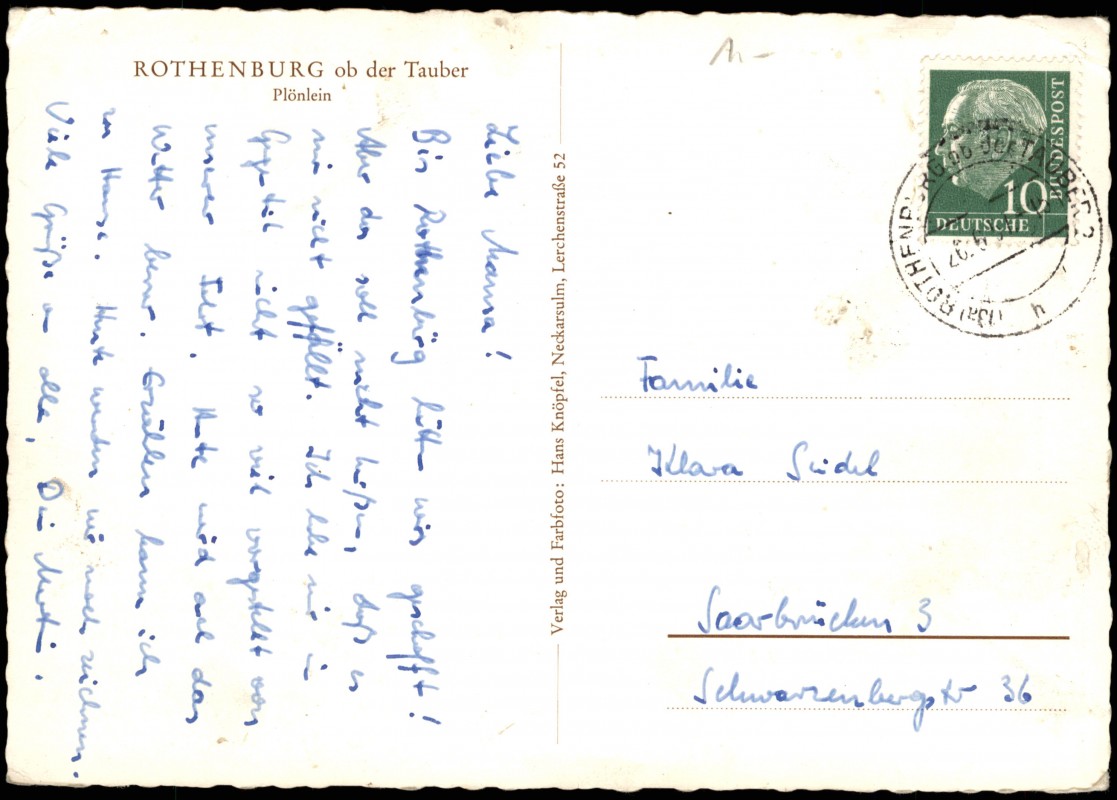 ROTHENBURG ob der Tauber
Plönlein
Liebe Mama!
Bis Rothenburg hätten wirs geschafft!
Aber das soll nicht heißen, daß es
mir nicht gefällt. Ich habe mir im
Gegenteil nicht so viel vorgestellt von
unserer Fahrt. Heute wird auch das
Wetter besser. Erzählen kann ich
zu Hause. Heute werden wir noch zeichnen.
Viele Grüße an alle, Dein
Verlag und Farbfoto: Hans Knöpfel, Neckarsulm, Lerchenstraße 52
DEUTSCHE
BUNDESPOST
10
(13a) ROTHENBURG OB DER TAUBER 2
Familie
Klara Seidel
Saarbrücken 3
Schwarzenbergstr 36